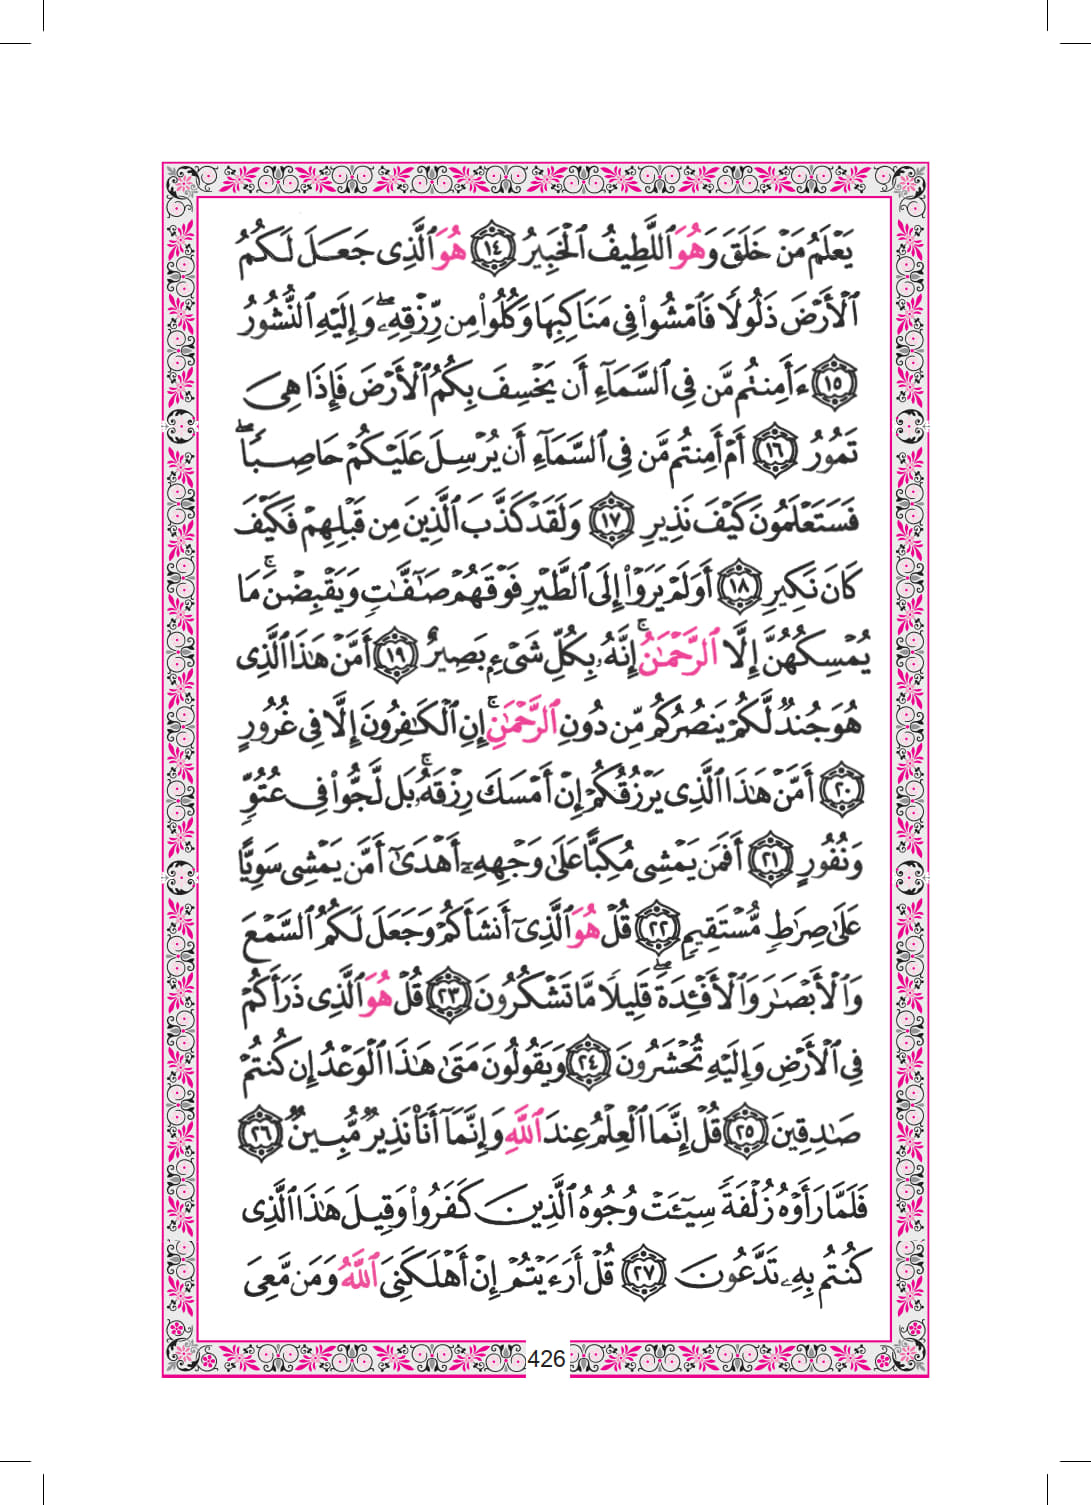 يَعْلَمُ مَنْ خَلَقَ وَهُوَ ٱللَّطِيفُ ٱلْخَبِيرُ ١٤ هُوَ ٱلَّذِى جَعَلَ لَكُمُ
ٱلْأَرْضَ ذَلُولًا فَٱمْشُوا۟ فِى مَنَاكِبِهَا وَكُلُوا۟ مِن رِّزْقِهِۦ ۖ وَإِلَيْهِ ٱلنُّشُورُ
١٥ ءَأَمِنتُم مَّن فِى ٱلسَّمَآءِ أَن يَخْسِفَ بِكُمُ ٱلْأَرْضَ فَإِذَا هِىَ
تَمُورُ ١٦ أَمْ أَمِنتُم مَّن فِى ٱلسَّمَآءِ أَن يُرْسِلَ عَلَيْكُمْ حَاصِبًا ۖ
فَسَتَعْلَمُونَ كَيْفَ نَذِيرِ ١٧ وَلَقَدْ كَذَّبَ ٱلَّذِينَ مِن قَبْلِهِمْ فَكَيْفَ
كَانَ نَكِيرِ ١٨ أَوَلَمْ يَرَوْا۟ إِلَى ٱلطَّيْرِ فَوْقَهُمْ صَـٰٓفَّـٰتٍ وَيَقْبِضْنَ ۚ مَا
يُمْسِكُهُنَّ إِلَّا ٱلرَّحْمَـٰنُ ۚ إِنَّهُۥ بِكُلِّ شَىْءٍۭ بَصِيرٌ ١٩ أَمَّنْ هَـٰذَا ٱلَّذِى
هُوَ جُندٌ لَّكُمْ يَنصُرُكُم مِّن دُونِ ٱلرَّحْمَـٰنِ ۚ إِنِ ٱلْكَـٰفِرُونَ إِلَّا فِى غُرُورٍ
٢٠ أَمَّنْ هَـٰذَا ٱلَّذِى يَرْزُقُكُمْ إِنْ أَمْسَكَ رِزْقَهُۥ ۚ بَل لَّجُّوا۟ فِى عُتُوٍّ
وَنُفُورٍ ٢١ أَفَمَن يَمْشِى مُكِبًّا عَلَىٰ وَجْهِهِۦٓ أَهْدَىٰٓ أَمَّن يَمْشِى سَوِيًّا
عَلَىٰ صِرَٰطٍ مُّسْتَقِيمٍ ٢٢ قُلْ هُوَ ٱلَّذِىٓ أَنشَأَكُمْ وَجَعَلَ لَكُمُ ٱلسَّمْعَ
وَٱلْأَبْصَـٰرَ وَٱلْأَفْـِٔدَةَ ۖ قَلِيلًا مَّا تَشْكُرُونَ ٢٣ قُلْ هُوَ ٱلَّذِى ذَرَأَكُمْ
فِى ٱلْأَرْضِ وَإِلَيْهِ تُحْشَرُونَ ٢٤ وَيَقُولُونَ مَتَىٰ هَـٰذَا ٱلْوَعْدُ إِن كُنتُمْ
صَـٰدِقِينَ ٢٥ قُلْ إِنَّمَا ٱلْعِلْمُ عِندَ ٱللَّهِ وَإِنَّمَآ أَنَا۠ نَذِيرٌ مُّبِينٌ ٢٦
فَلَمَّا رَأَوْهُ زُلْفَةً سِيٓـَٔتْ وُجُوهُ ٱلَّذِينَ كَفَرُوا۟ وَقِيلَ هَـٰذَا ٱلَّذِى
كُنتُم بِهِۦ تَدَّعُونَ ٢٧ قُلْ أَرَءَيْتُمْ إِنْ أَهْلَكَنِىَ ٱللَّهُ وَمَن مَّعِىَ
426